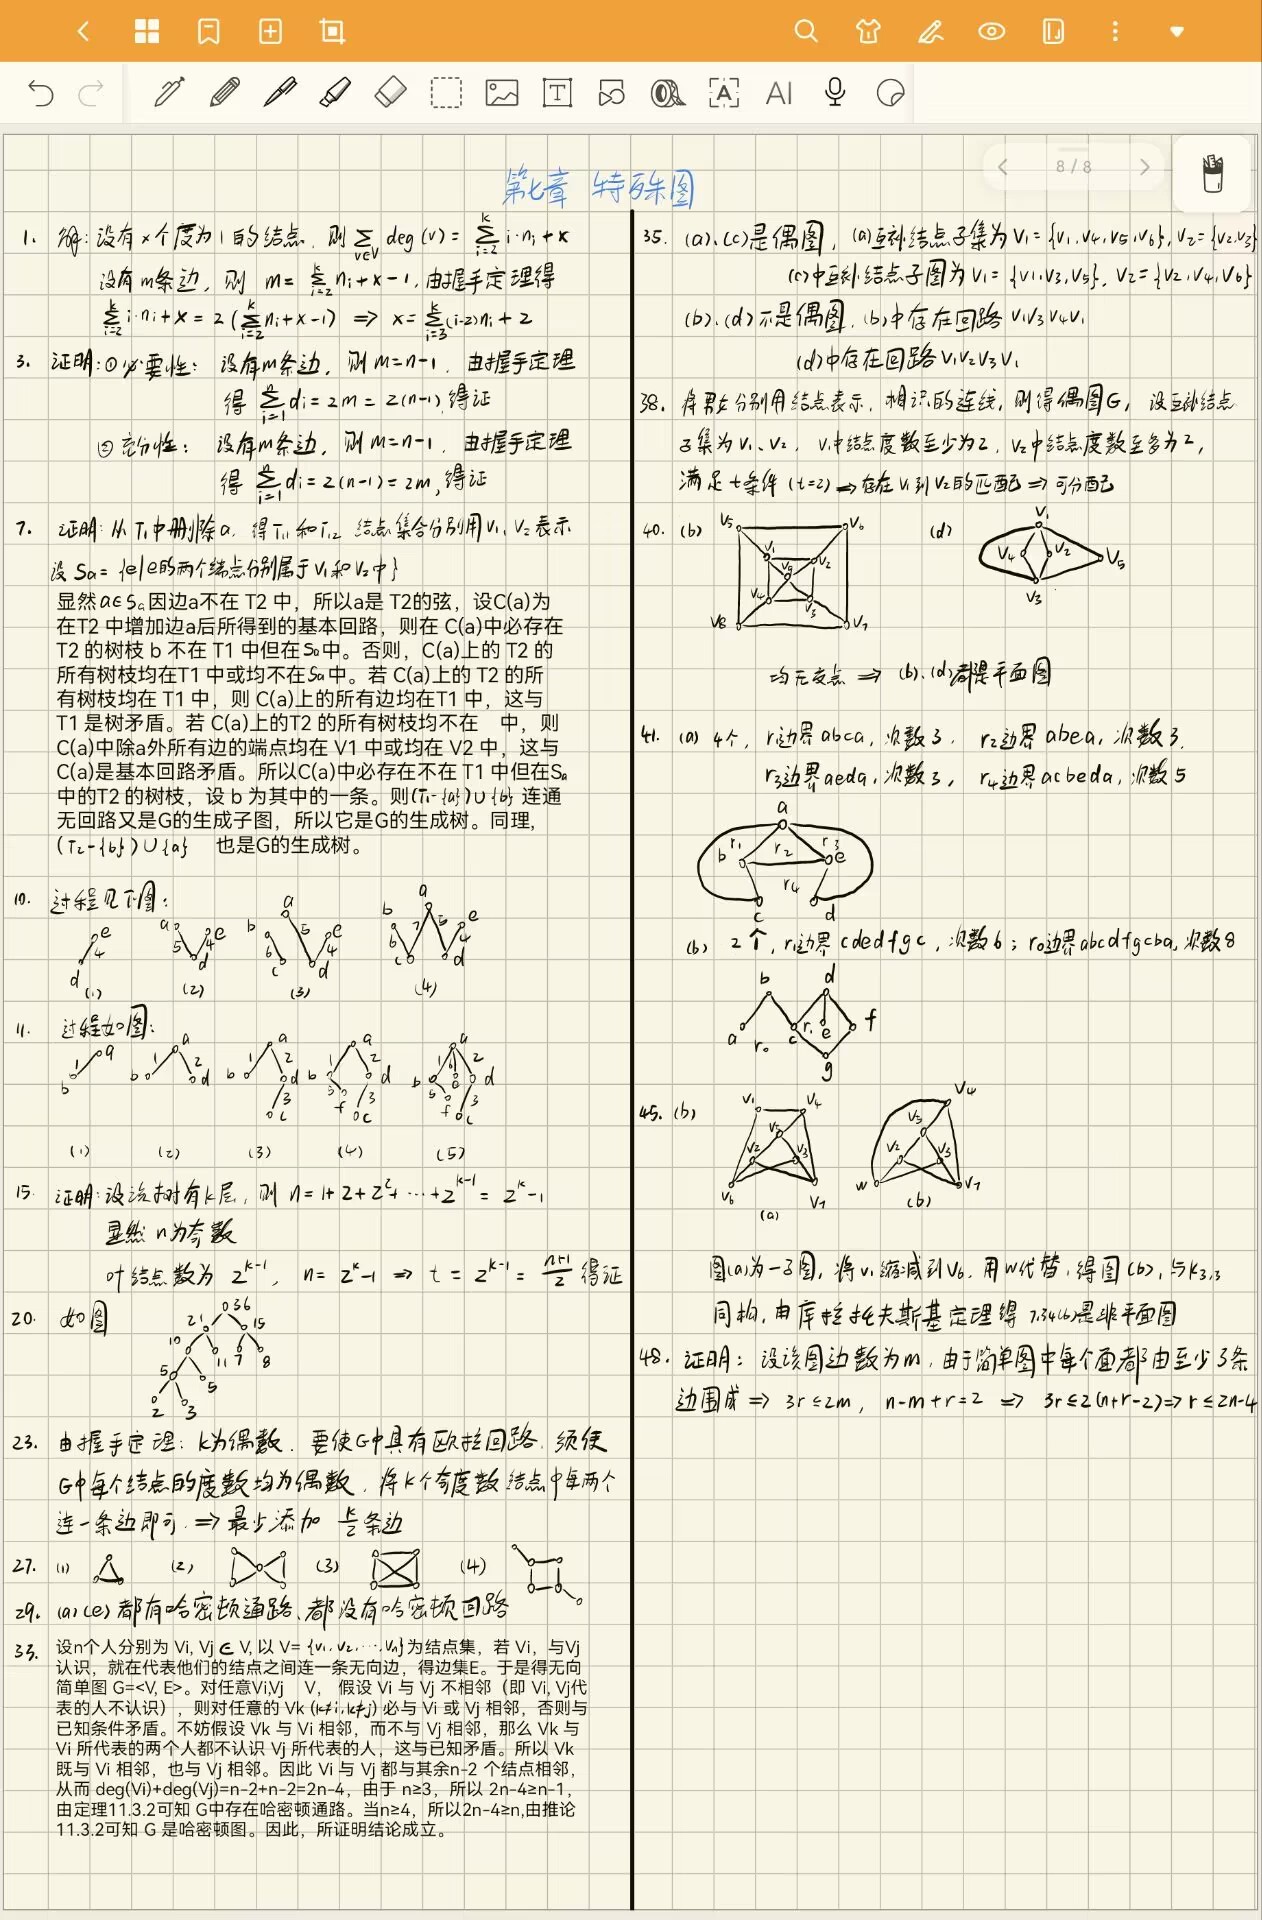 AI
8 / 8
第七章 特殊图
1. 解: 设有 x 个度为 1 的结点, 则 Σ_{v∈V} deg(v) = Σ_{i=2}^{k} i·nᵢ + x
设有 m条边, 则 m = Σ_{i=2}^{k} nᵢ + x - 1, 由握手定理得
Σ_{i=2}^{k} i·nᵢ + x = 2(Σ_{i=2}^{k} nᵢ + x - 1) ⇒ x = Σ_{i=3}^{k} (i-2)nᵢ + 2
3. 证明: ① 必要性: 设有m条边, 则 m=n-1, 由握手定理
得 Σ_{i=1}^{n} dᵢ = 2m = 2(n-1), 得证
② 充分性: 设有m条边, 则 m=n-1, 由握手定理
得 Σ_{i=1}^{n} dᵢ = 2(n-1) = 2m, 得证
7. 证明: 从 T₁中删除a, 得 T₁₁ 和 T₁₂ 结点集合分别用 V₁、V₂ 表示
设 Sa = {e|e的两个结点分别属于 V₁ 和 V₂ 中}
显然 a∈Sa 因边a不在 T2 中，所以a是 T2的弦，设C(a)为
在T2 中增加边a后所得到的基本回路，则在 C(a)中必存在
T2 的树枝 b 不在 T1 中但在Sa中。否则，C(a)上的 T2 的
所有树枝均在T1 中或均不在Sa中。若 C(a)上的 T2 的所
有树枝均在 T1 中，则 C(a)上的所有边均在T1 中，这与
T1 是树矛盾。若 C(a)上的T2 的所有树枝均不在 中，则
C(a)中除a外所有边的端点均在 V1 中或均在 V2 中，这与
C(a)是基本回路矛盾。所以C(a)中必存在不在 T1 中但在Sa
中的T2 的树枝，设 b 为其中的一条。则(T₁-{a})∪{b} 连通
无回路又是G的生成子图，所以它是G的生成树。同理,
(T₂-{b})∪{a} 也是G的生成树。
10. 过程见下图:
e 4 d (1)
a e 5 4 d (2)
a b e 6 5 4 c d (3)
a b e 6 7 5 4 c d (4)
11. 过程如图:
1 a b
a 1 2 b d
a 1 2 b d 3 c
a 1 2 b d 5 3 f c
a 1 6 2 b e d 5 3 f c
(1) (2) (3) (4) (5)
15. 证明: 设该树有k层, 则 n=1+2+2²+…+2^{k-1} = 2^k-1
显然 n为奇数
叶结点数为 2^{k-1}, n=2^k-1 ⇒ t = 2^{k-1} = (n+1)/2 得证
20. 如图
36
21 15
10 11 7 8
5 5
2 3
23. 由握手定理: k为偶数, 要使G中具有欧拉回路, 须使
G中每个结点的度数均为偶数, 将k个奇度数结点中每两个
连一条边即可. ⇒ 最少添加 k/2 条边
27. (1) (2) (3) (4)
29. (a)(e) 都有哈密顿通路、都没有哈密顿回路
33. 设n个人分别为 Vi, Vj ∈ V, 以 V= {v₁, v₂, …, vn} 为结点集，若 Vi，与Vj
认识，就在代表他们的结点之间连一条无向边，得边集E。于是得无向
简单图 G=<V, E>。对任意Vi,Vj V， 假设 Vi 与 Vj 不相邻（即 Vi, Vj代
表的人不认识），则对任意的 Vk (k≠i, k≠j) 必与 Vi 或 Vj 相邻，否则与
已知条件矛盾。不妨假设 Vk 与 Vi 相邻，而不与 Vj 相邻，那么 Vk 与
Vi 所代表的两个人都不认识 Vj 所代表的人，这与已知矛盾。所以 Vk
既与 Vi 相邻，也与 Vj 相邻。因此 Vi 与 Vj 都与其余n-2 个结点相邻，
从而 deg(Vi)+deg(Vj)=n-2+n-2=2n-4，由于 n≥3，所以 2n-4≥n-1，
由定理11.3.2可知 G中存在哈密顿通路。当n≥4，所以2n-4≥n,由推论
11.3.2可知 G 是哈密顿图。因此，所证明结论成立。
35. (a)、(c)是偶图, (a)互补结点子集为 V₁={v₁,v₄,v₅,v₆}, V₂={v₂,v₃}
(c)中互补结点子图为 V₁={v₁,v₃,v₅}, V₂={v₂,v₄,v₆}
(b)、(d)不是偶图, (b)中存在回路 v₁v₃v₄v₁
(d)中存在回路 v₁v₂v₃v₁
38. 将男女分别用结点表示, 相识的连线, 则得偶图G, 设互补结点
子集为 V₁、V₂, V₁中结点度数至少为2, V₂中结点度数至多为2,
满足 t 条件 (t=2) ⇒ 存在 V₁到V₂的匹配 ⇒ 可分配
40. (b) v₅ v₆ v₁ v₂ v₉ v₄ v₃ v₈ v₇ (d) v₁ v₄ v₂ v₅ v₃
均无交点 ⇒ (b)、(d)都是平面图
41. (a) 4个, r₁边界 abca, 次数3, r₂边界 abea, 次数3,
r₃边界aeda, 次数3, r₄边界 acbeda, 次数5
a
b r₁ r₂ r₃ e
r₄
c d
(b) 2个, r₁边界 cdedfgc, 次数6; r₀边界 abcdfgcba, 次数8
b d
a r₀ c r₁ e f
g
45. (b) v₁ v₄ v₅ v₂ v₃ v₆ v₇ (a)
v₄ v₅ v₂ v₃ w v₇ (b)
图(a)为一子图, 将v₁缩减到v₆, 用w代替, 得图(b), 与K₃,₃
同构, 由库拉托夫斯基定理得 7.34(b)是非平面图
48. 证明: 设该图边数为m, 由于简单图中每个面都由至少3条
边围成 ⇒ 3r≤2m, n-m+r=2 ⇒ 3r≤2(n+r-2) ⇒ r≤2n-4